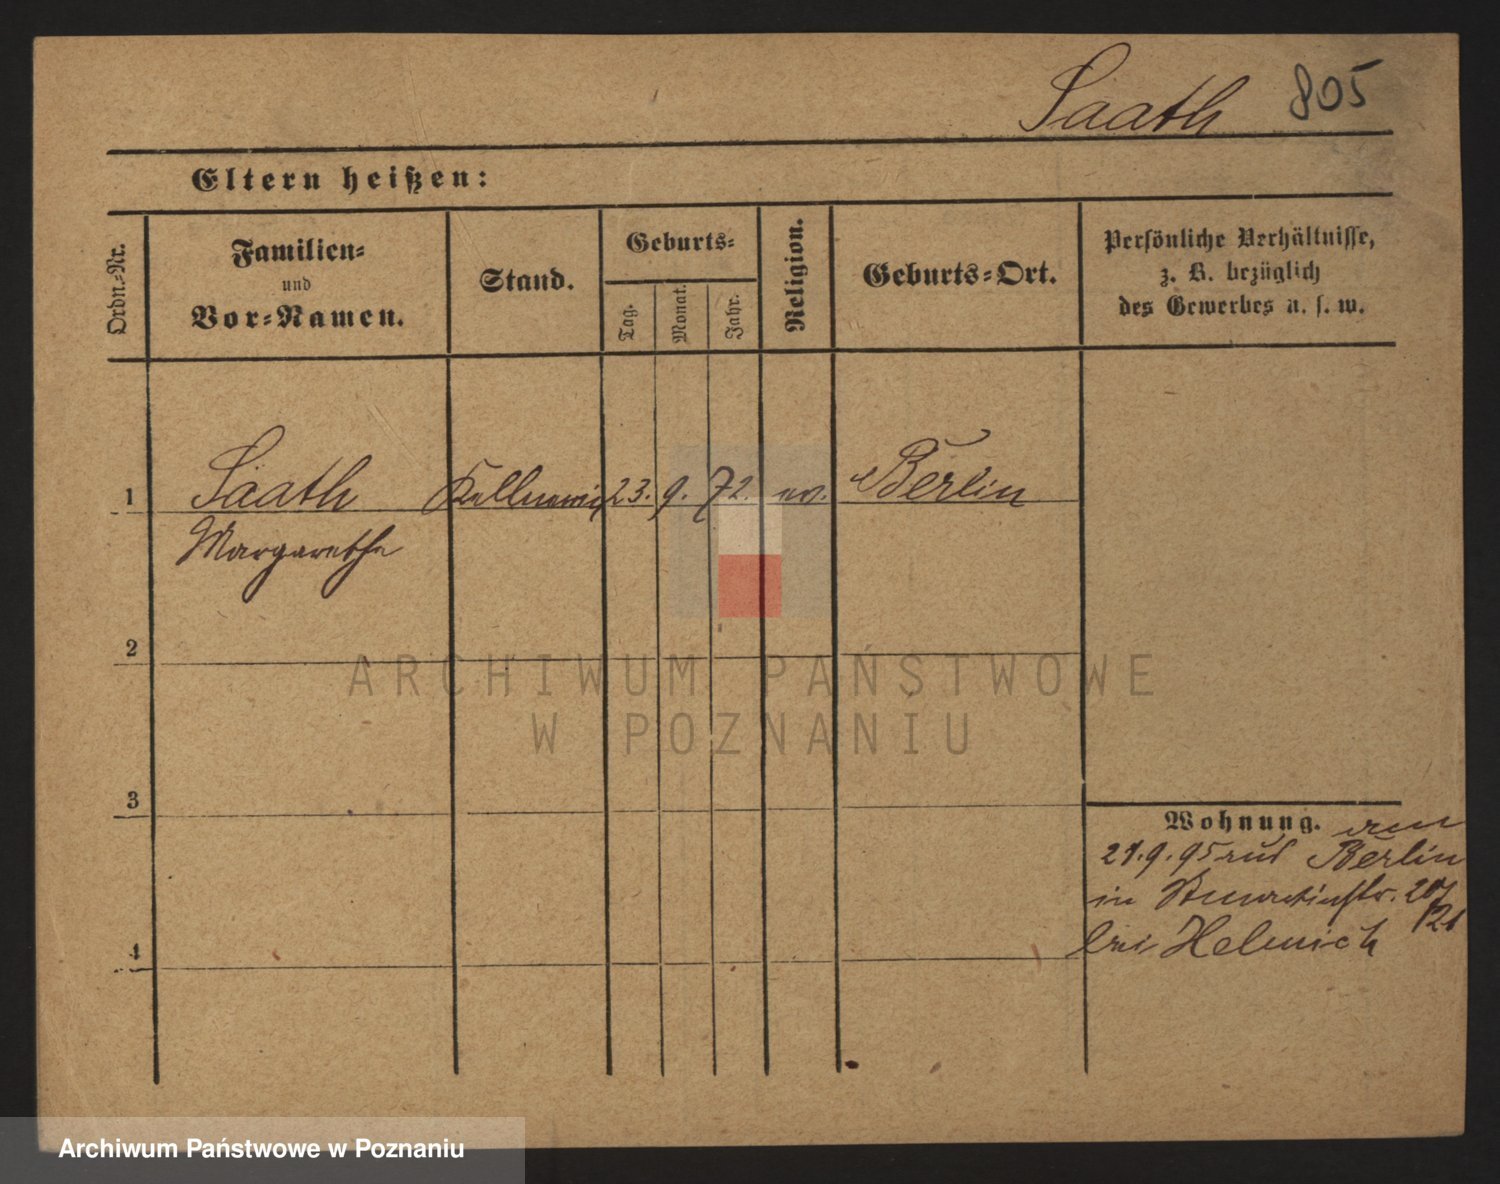 Saath 805
Eltern heißen:
Ordn.-Nr.
Familien-
und
Vor-Namen.
Stand.
Geburts-
Tag.
Monat.
Jahr.
Religion.
Geburts-Ort.
Persönliche Verhältnisse,
z. B. bezüglich
des Gewerbes u. s. w.
1 Saath Kellnerin 23. 9. 72. ev. Berlin
Margarethe
2
3
4
Wohnung. am
21.9.95 aus Berlin
in St martinstr.
bei Helmich
ARCHIWUM PAŃSTWOWE
W POZNANIU
Archiwum Państwowe w Poznaniu